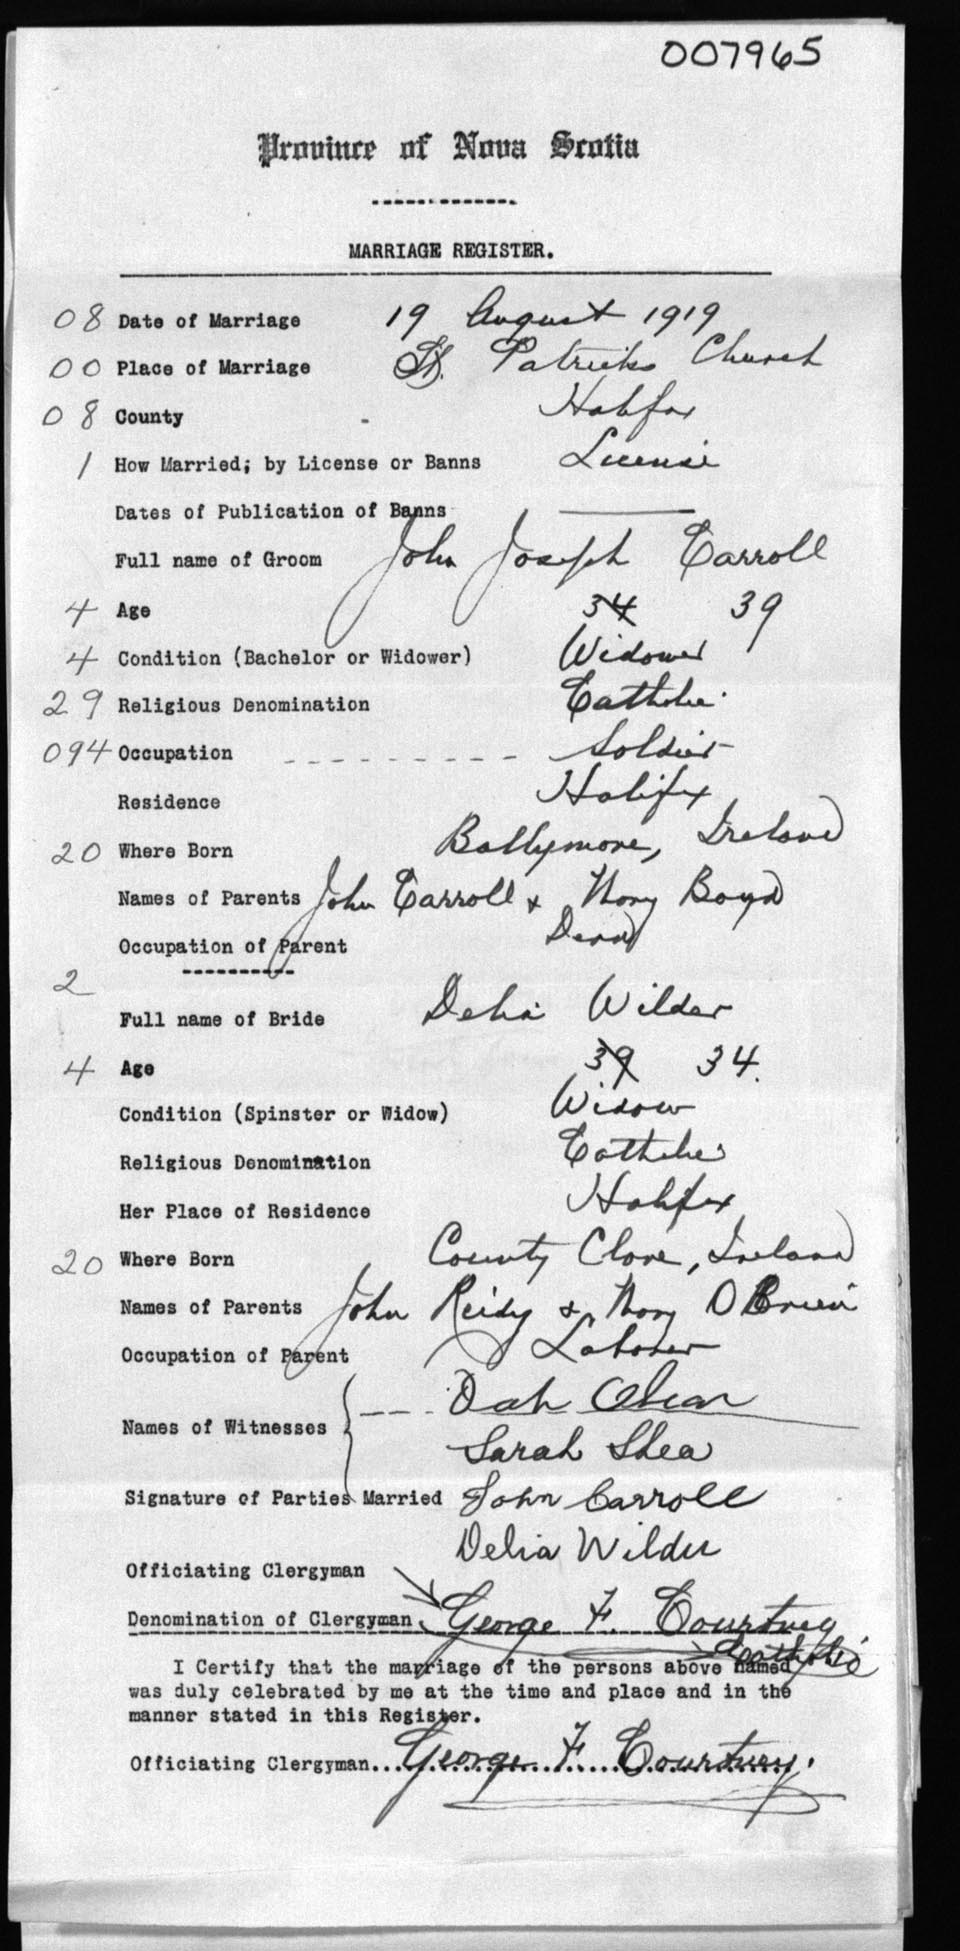 007965
Province of Nova Scotia
MARRIAGE REGISTER.
08 Date of Marriage 19 August 1919
00 Place of Marriage St. Patricks Church
08 County Halifax
1 How Married; by License or Banns License
Dates of Publication of Banns
Full name of Groom John Joseph Carroll
4 Age 34 39
4 Condition (Bachelor or Widower) Widower
29 Religious Denomination Catholic
094 Occupation Soldier
Residence Halifax
20 Where Born Ballymore, Ireland
Names of Parents John Carroll & Mary Boyd
Occupation of Parent Dead
2
Full name of Bride Delia Wilder
4 Age 39 34.
Condition (Spinster or Widow) Widow
Religious Denomination Catholic
Her Place of Residence Halifax
20 Where Born County Clare, Ireland
Names of Parents John Reidy & Mary O Brien
Occupation of Parent Laborer
Names of Witnesses
Sarah Shea
Signature of Parties Married John Carroll
Delia Wilder
Officiating Clergyman
Denomination of Clergyman George F. Courtney
Catholic
I Certify that the marriage of the persons above named
was duly celebrated by me at the time and place and in the
manner stated in this Register.
Officiating Clergyman... George F Courtney.